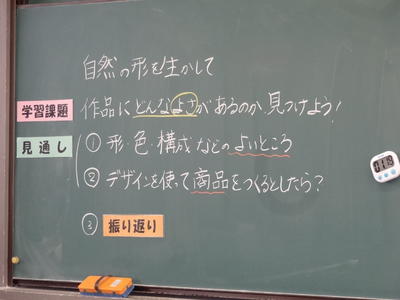 自然の形を生かして
学習課題 作品にどんなよさがあるのか、見つけよう!
見通し ① 形・色・構成などのよいところ
② デザインを使って商品をつくるとしたら?
③ 振り返り